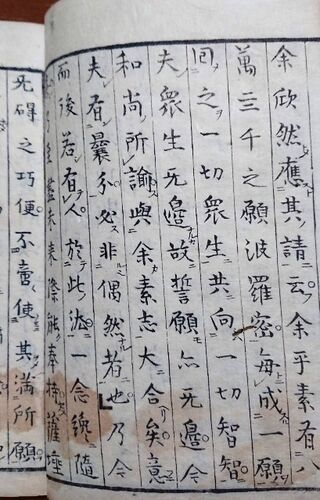 余欣然應其請云余乎素有八
萬三千之願波羅密每成一願
回之一切衆生共向一切智智
夫衆生无邊故誓願亦无邊今
和尚所諭與余素志大合矣意
夫有曩分必非偶然者也乃今
而後若有人於此法一念纔隨
未來際能奉持薩埵
无碍之巧便不啻使其滿所願